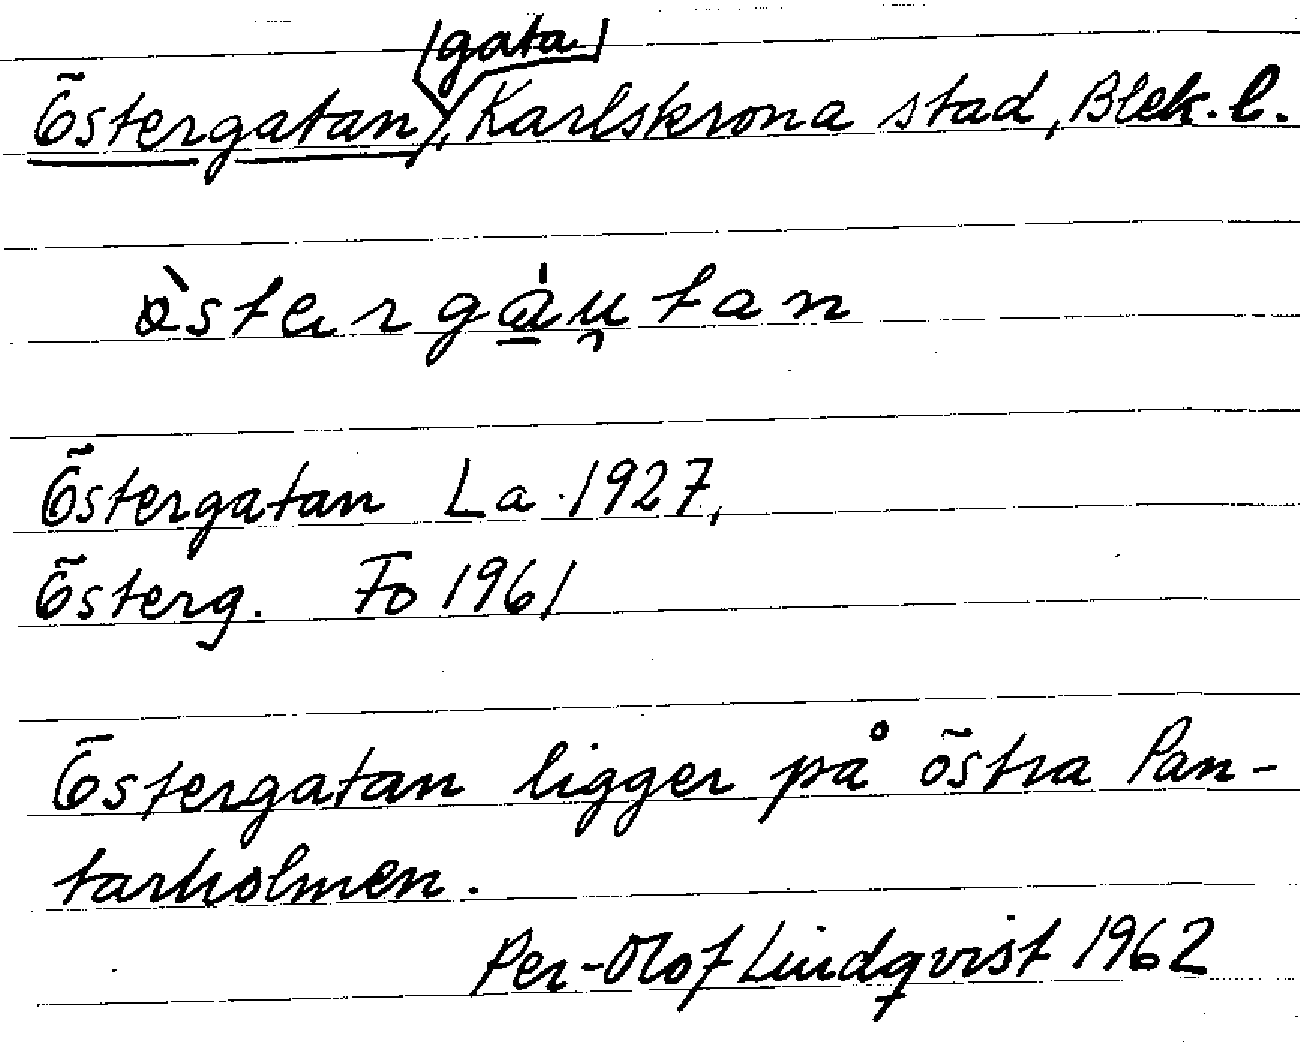 (gata)
Östergatan, Karlskrona stad, Blek. l.
Östergatan La. 1927,
Österg. Fo 1961
Östergatan ligger på östra Pan-
tarholmen.
Per-Olof Lindqvist 1962